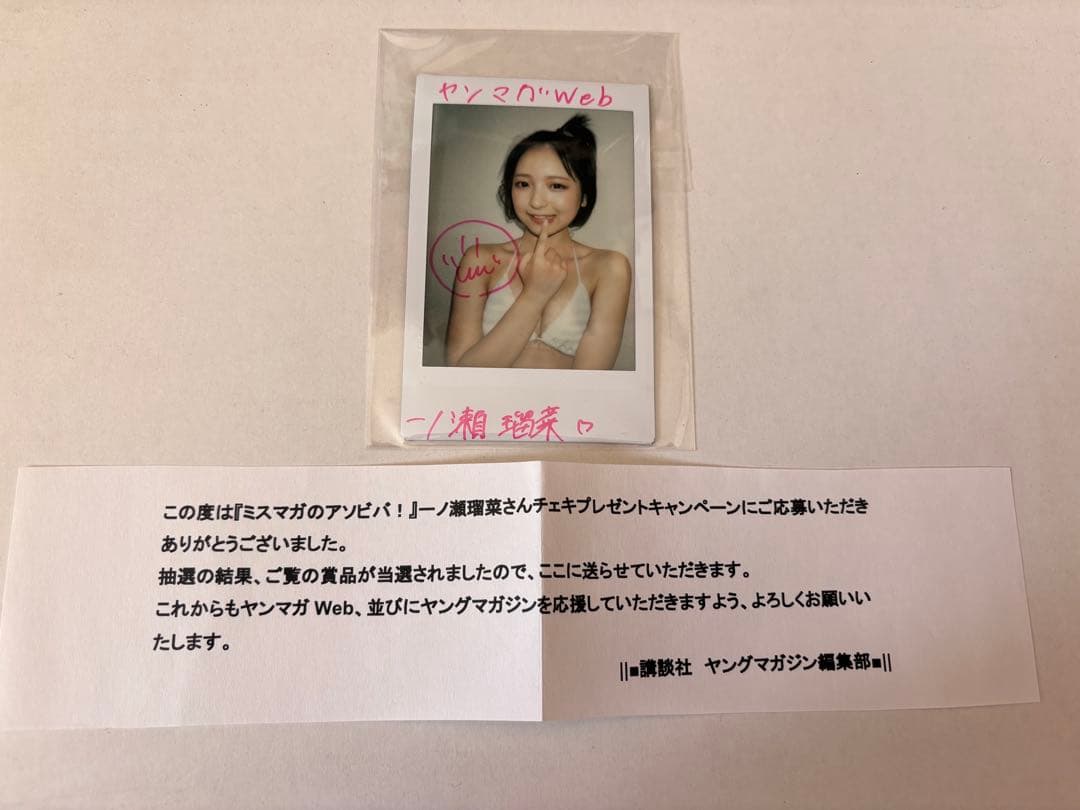 ヤンマガWeb
一ノ瀬 瑠菜
この度は『ミスマガのアソビバ！』一ノ瀬瑠菜さんチェキプレゼントキャンペーンにご応募いただき
ありがとうございました。
抽選の結果、ご覧の賞品が当選されましたので、ここに送らせていただきます。
これからもヤンマガ Web、並びにヤングマガジンを応援していただきますよう、よろしくお願いい
たします。
||■講談社　ヤングマガジン編集部■||